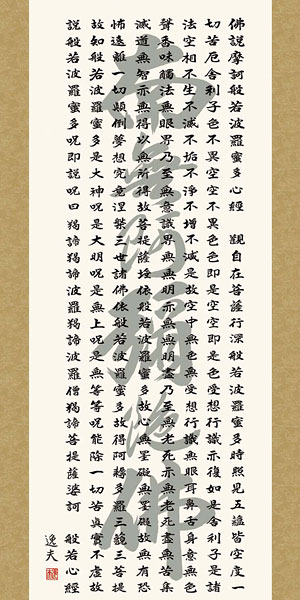 佛説摩訶般若波羅蜜多心經 觀自在菩薩行深般若波羅蜜多時照見五蘊皆空度一
切苦厄舍利子色不異空空不異色色即是空空即是色受想行識亦復如是舍利子是諸
法空相不生不滅不垢不淨不增不減是故空中無色無受想行識無眼耳鼻舌身意無色
聲香味觸法無眼界乃至無意識界無無明亦無無明盡乃至無老死亦無老死盡無苦集
滅道無智亦無得以無所得故菩提薩埵依般若波羅蜜多故心無罣礙無罣礙故無有恐
怖遠離一切顛倒夢想究竟涅槃三世諸佛依般若波羅蜜多故得阿耨多羅三藐三菩提
故知般若波羅蜜多是大神呪是大明呪是無上呪是無等等呪能除一切苦真實不虛故
説般若波羅蜜多呪即説呪曰 羯諦羯諦波羅羯諦波羅僧羯諦菩提薩婆訶 般若心經
逸夫
南無阿彌陀佛